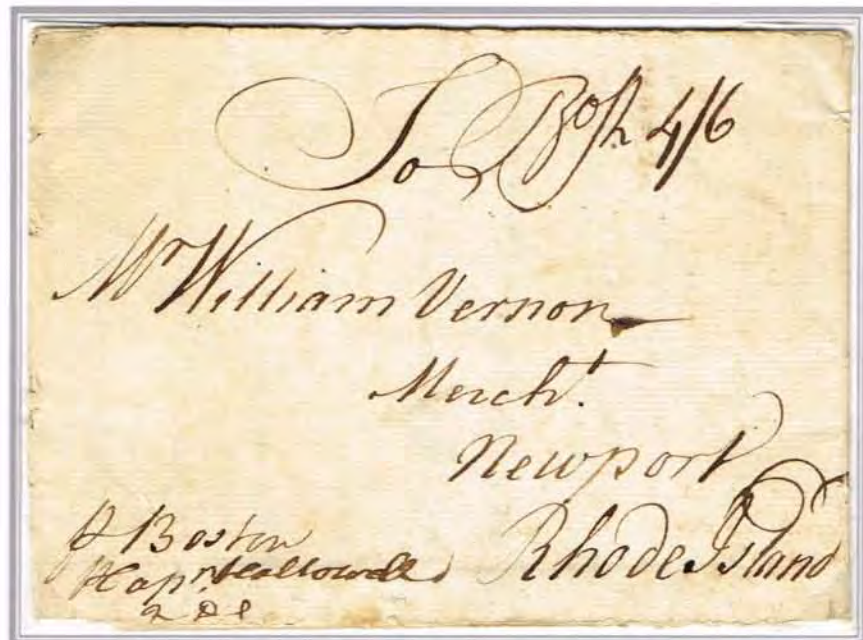 To Bost 4/6
Mr William Vernon
Mercht.
Newport
Rhode Island
p Boston
Hallowell